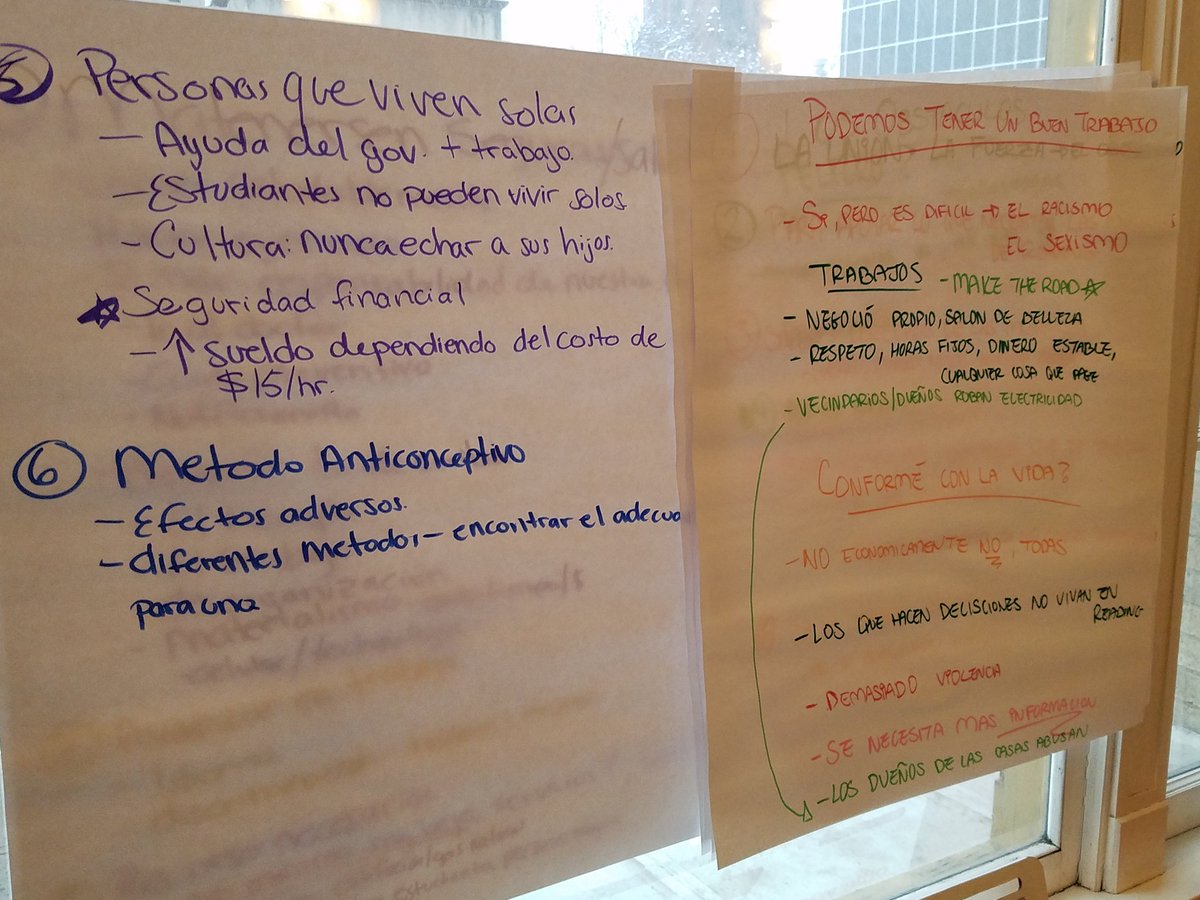 5 Personas que viven solas
- Ayuda del gov. + trabajo.
- Estudiantes no pueden vivir solos.
- Cultura: nunca echar a sus hijos.
☆ Seguridad financial
- ↑ sueldo dependiendo del costo de
$15/hr.
6 Metodo Anticonceptivo
- Efectos adversos.
- diferentes metodos - encontrar el adecua
para una
PODEMOS TENER UN BUEN TRABAJO
- SI, PERO ES DIFICIL → EL RACISMO
EL SEXISMO
TRABAJOS - MAKE THE ROAD ☆
- NEGOCIÓ PROPIO, SALON DE BELLEZA
- RESPETO, HORAS FIJOS, DINERO ESTABLE,
CUALQUIER COSA QUE PAGE
- VECINDARIOS/DUEÑOS ROBAN ELECTRICIDAD
CONFORMÉ CON LA VIDA?
- NO ECONOMICAMENTE NO, TODAS
- LOS QUE HACEN DECISCIONES NO VIVAN EN
READING
- DEMASIADO VIOLENCIA
- SE NECESITA MAS INFORMACION
- LOS DUEÑOS DE LAS CASAS ABUSAN